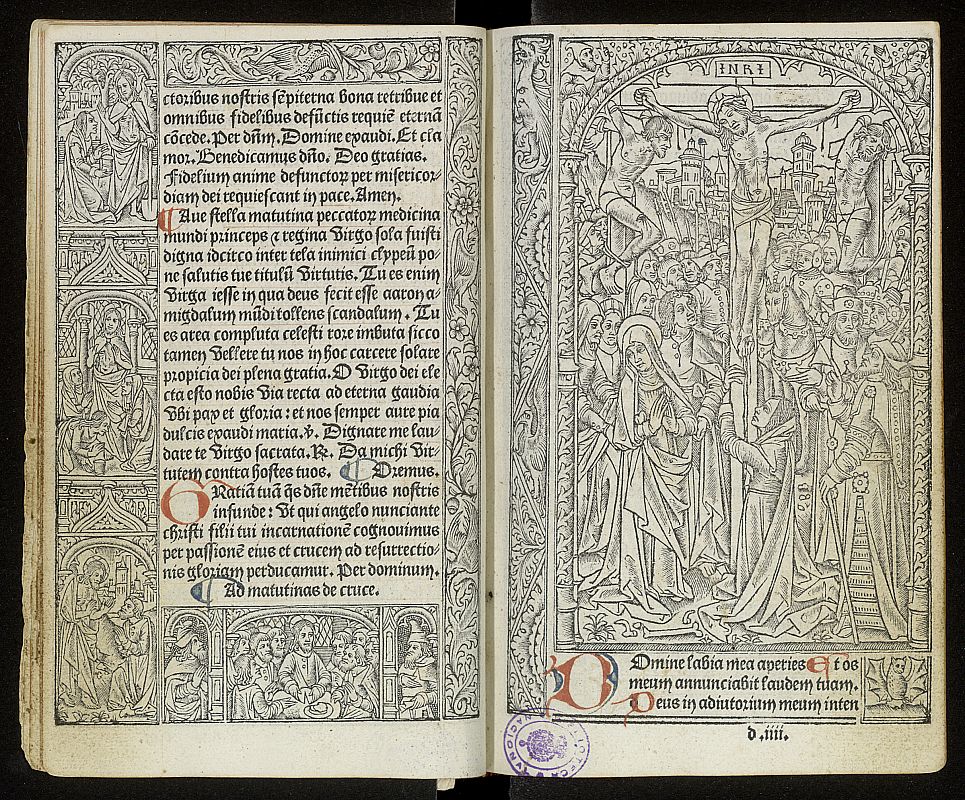 ctoribus nostris sẽpiterna bona retribue et
omnibus fidelibus defũctis requiẽ eternã
cõcede. Per dñm. Domine exaudi. Et cla
mor. Benedicamus dño. Deo gratias.
Fidelium anime defunctoꝝ per misericor-
diam dei requiescant in pace. Amen.
¶ Aue stella matutina peccatoꝝ medicina
mundi princeps ⁊ regina Virgo sola fuisti
digna idcirco inter tela inimici clypeũ po-
ne salutis tue titulũ Virtutis. Tu es enim
Virga iesse in qua deus fecit esse aaron a-
migdalum mũdi tollens scandalum. Tu
es area compluta celesti rore imbuta sicco
tamen Vellere tu nos in hoc carcere solare
propicia dei plena gratia. O Virgo dei ele
cta esto nobis Via recta ad eterna gaudia
Vbi pax et gloria: et nos semper aure pia
dulcis exaudi maria. ℣. Dignare me lau-
dare te Virgo sacrata. ℟. Da michi Vir-
tutem contra hostes tuos. ¶ Oremus.
GRatiã tuã q̃s dñe mẽtibus nostris
infunde: Vt qui angelo nunciante
christi filii tui incarnationẽ cognouimus
per passionẽ eius et crucem ad resurrectio-
nis gloriam perducamur. Per dominum.
¶ Ad matutinas de cruce.
INRI
DOmine labia mea aperies Et os
meum annunciabit laudem tuam.
Deus in adiutorium meum inten
d.iiii.
BIBLIOTECA NACIONAL